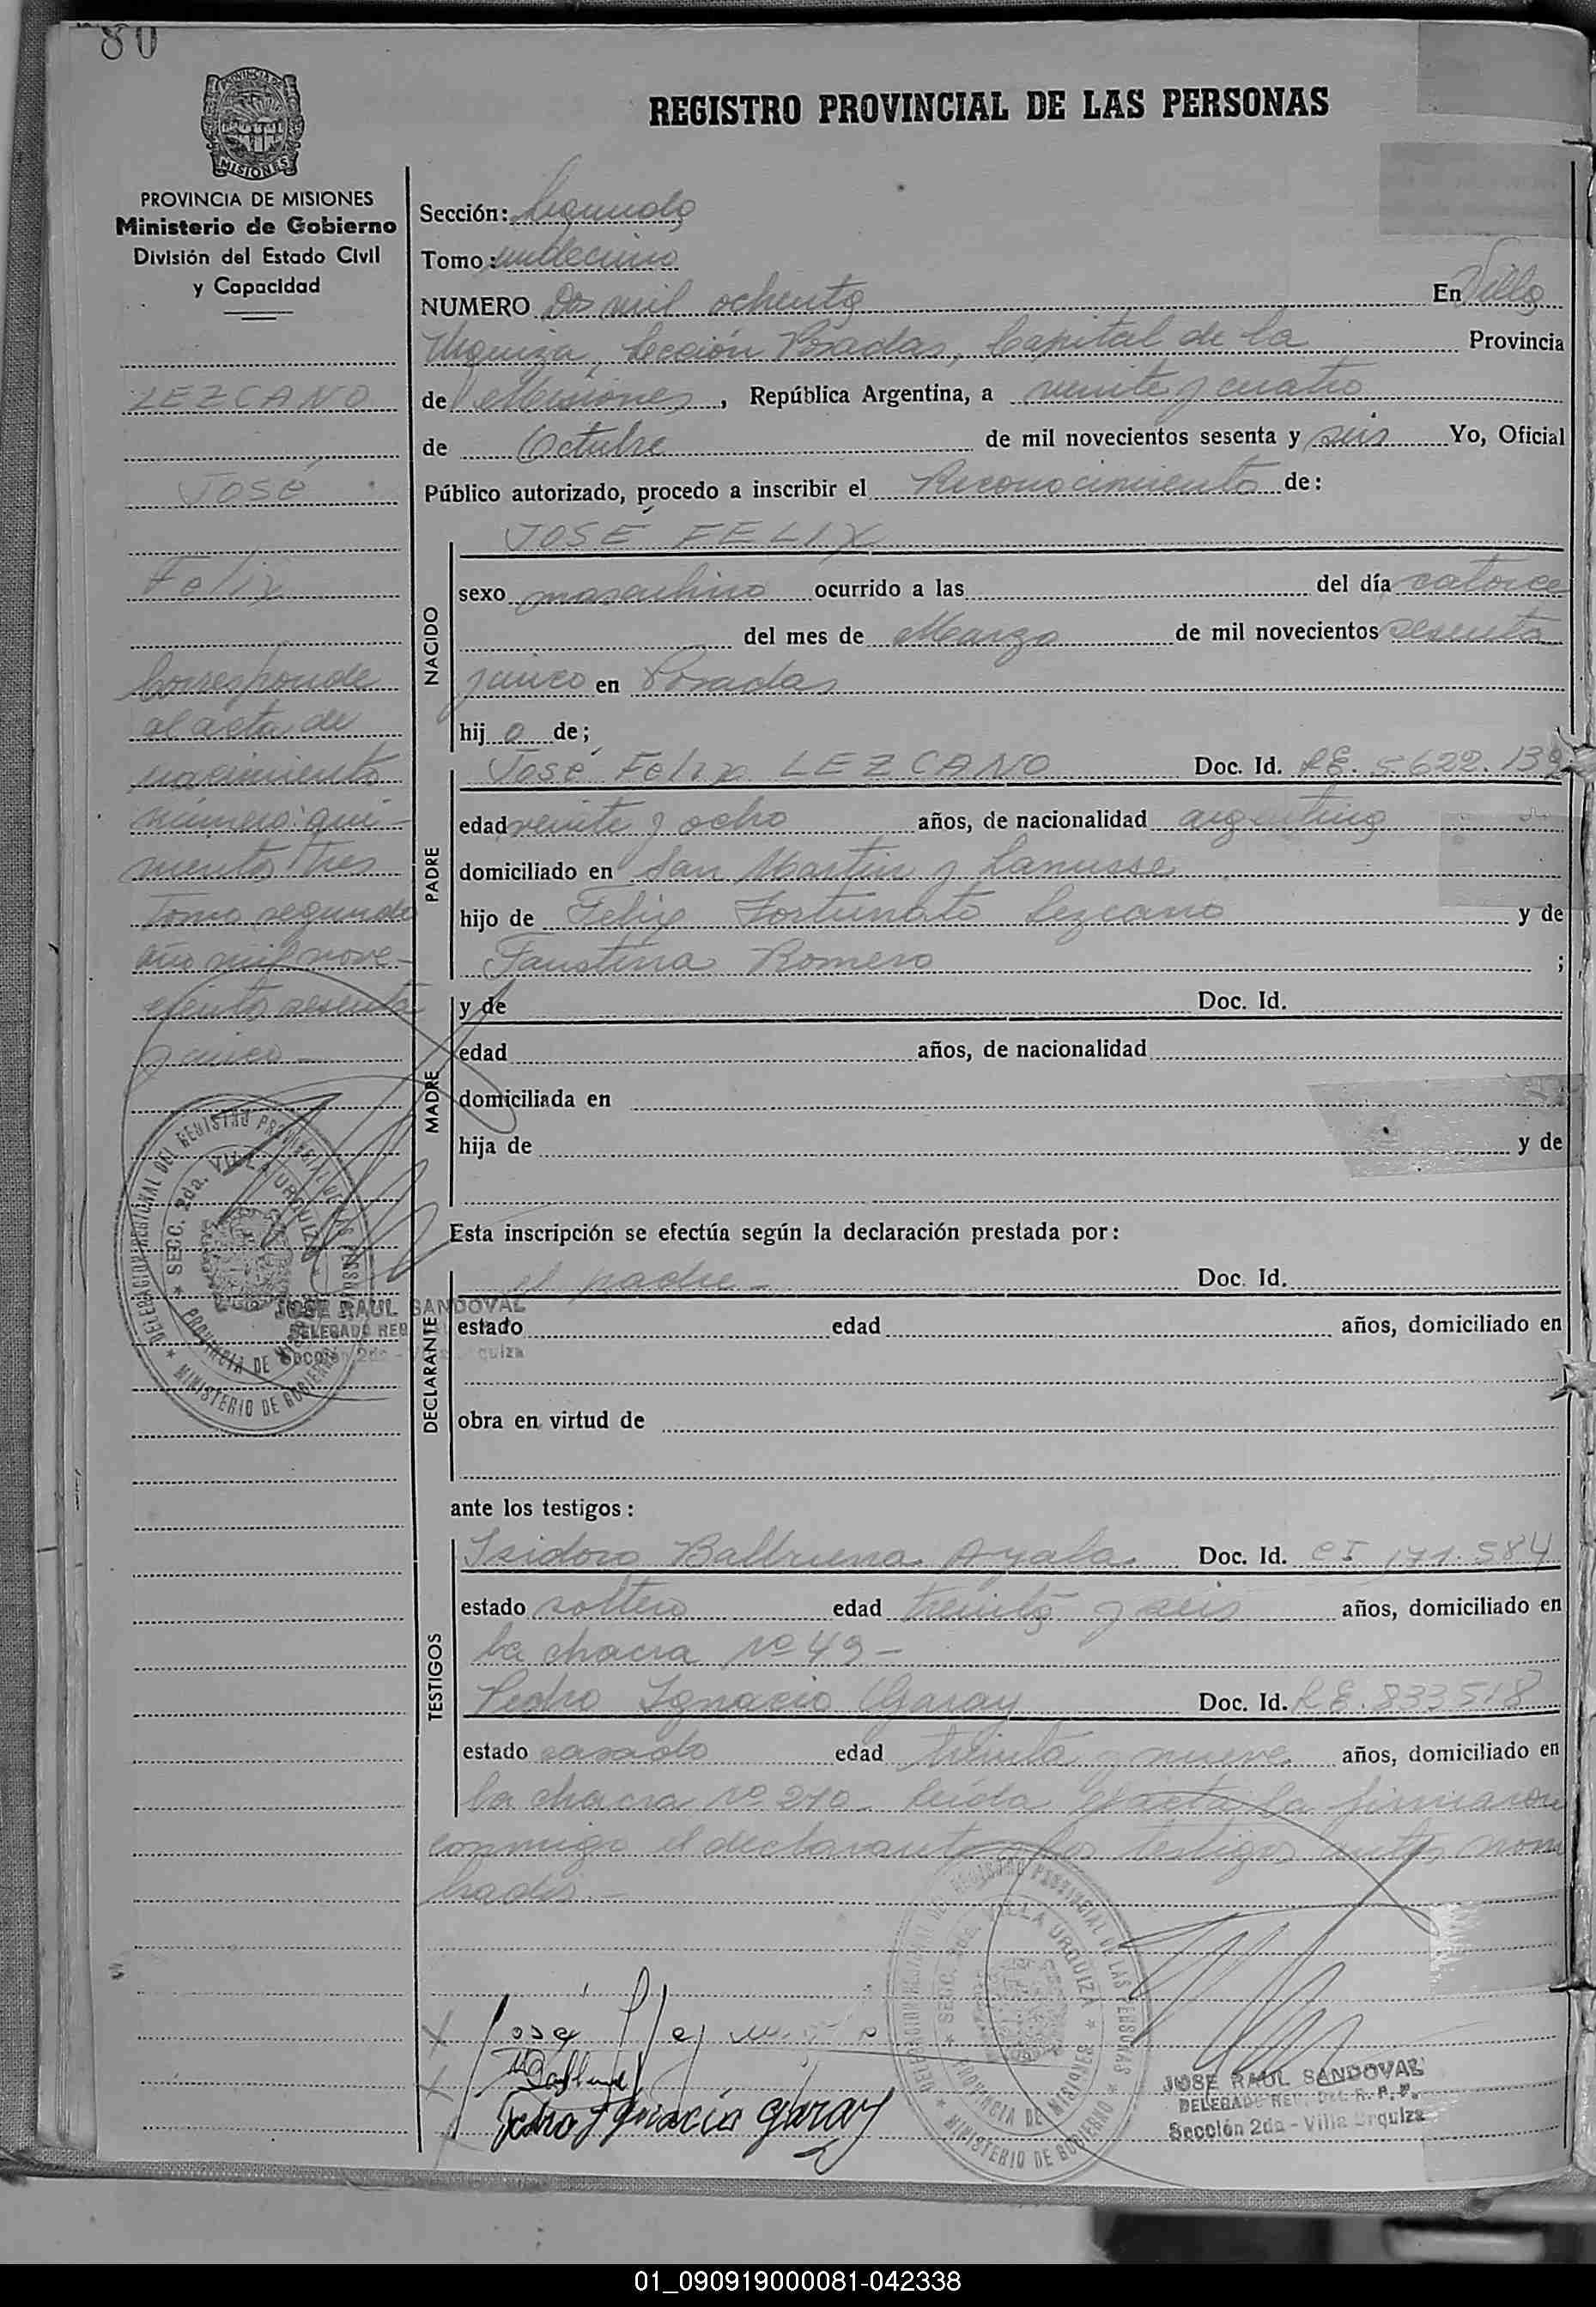 80
PROVINCIA DE MISIONES
Ministerio de Gobierno
División del Estado Civil
y Capacidad
LEZCANO
José
Felix
Corresponde
al acta de
nacimiento
número qui-
niento tres
Tomo segundo
año mil nove-
ciento sesenta
y cinco -
REGISTRO PROVINCIAL DE LAS PERSONAS
Sección: Segunda
Tomo: undecimo
NUMERO Dos mil ochenta En Villa
Urquiza, Sección Posadas, Capital de la Provincia
de Misiones, República Argentina, a veinte y cuatro
de Octubre de mil novecientos sesenta y seis Yo, Oficial
Público autorizado, procedo a inscribir el Reconocimiento de:
JOSÉ FELIX
NACIDO
sexo masculino ocurrido a las del día catorce
del mes de Marzo de mil novecientos sesenta
y cinco en Posadas
hijo de;
PADRE
José Felix LEZCANO Doc. Id. LE. 5622.139
edad veinte y ocho años, de nacionalidad argentina
domiciliado en San Martin y Lanusse
hijo de Felix Fortunato Lezcano y de
Faustina Romero ;
MADRE
y de Doc. Id.
edad años, de nacionalidad
domiciliada en
hija de y de
Esta inscripción se efectúa según la declaración prestada por:
DECLARANTE
el padre - Doc. Id.
estado edad años, domiciliado en
obra en virtud de
ante los testigos:
TESTIGOS
Isidoro Balbuena Ayala Doc. Id. CI 171.584
estado soltero edad treinta y seis años, domiciliado en
la chacra nº 49 -
Pedro Ignacio Garay Doc. Id. L.E. 833518
estado casado edad treinta y nueve años, domiciliado en
la chacra nº 210 leída el acta la firmaron
conmigo el declarante y los testigos antes nom
brados -
José
Pedro Ignacio Garay
DELEGACION REGIONAL DEL REGISTRO PROVINCIAL DE LAS PERSONAS
SECC. 2da. VILLA URQUIZA
PROVINCIA DE MISIONES
MINISTERIO DE GOBIERNO
JOSE RAUL SANDOVAL
DELEGADO REG. DEL R. P. P.
Sección 2da - Villa Urquiza
DELEGACION REGIONAL DEL REGISTRO PROVINCIAL DE LAS PERSONAS
SECC. 2da. VILLA URQUIZA
PROVINCIA DE MISIONES
MINISTERIO DE GOBIERNO
JOSE RAUL SANDOVAL
DELEGADO REG
Sección 2da -
01_090919000081-042338